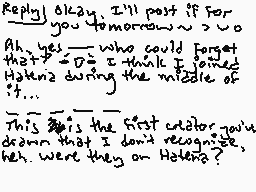 Reply Okay, I'll post it for
you tomorrow ~ > w o
Ah, yes — who could forget
that? = O = I think I joined
Hatena during the middle of
it...
This is the first creator you've
drawn that I don't recognize,
heh. Were they on Hatena?